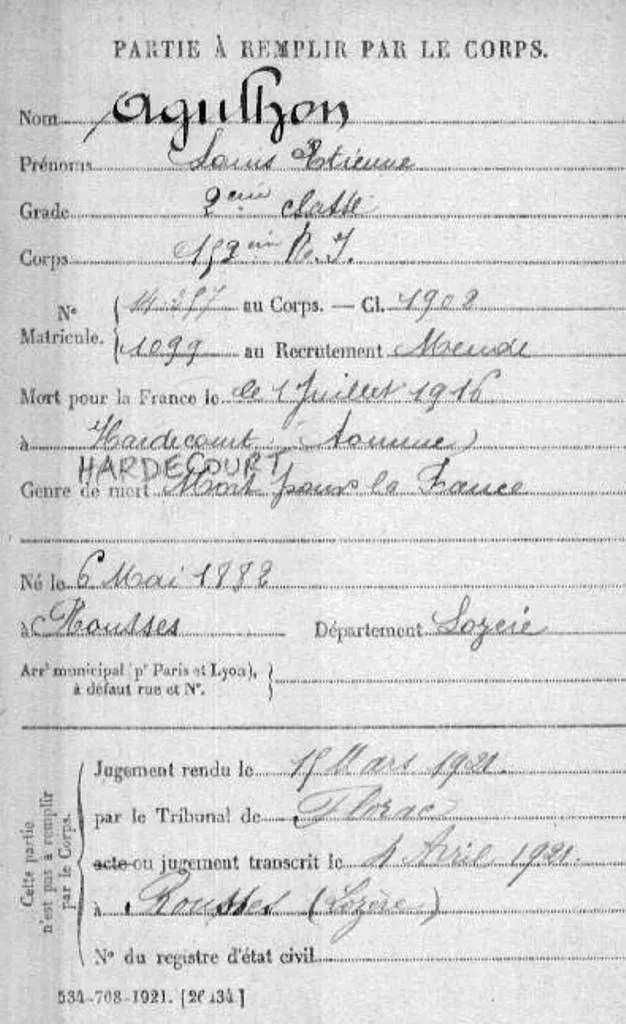 PARTIE À REMPLIR PAR LE CORPS.
Nom Agulhon
Prénoms Louis Etienne
Grade 2eme classe
Corps 152eme R. I.
N° Matricule. 14 357 au Corps. — Cl. 1902
1099 au Recrutement Mende
Mort pour la France le le 1 Juillet 1916
à Hardecourt (Somme)
HARDECOURT
Genre de mort Mort pour la France
Né le 6 Mai 1882
à Rousses Département Lozère
Arrt municipal (pr Paris et Lyon), à défaut rue et N°.
Cette partie n'est pas à remplir par le Corps.
Jugement rendu le 15 Mars 1921.
par le Tribunal de Florac
acte ou jugement transcrit le 4 Avril 1921.
à Rousses (Lozère)
N° du registre d'état civil
534-708-1921. [26434]